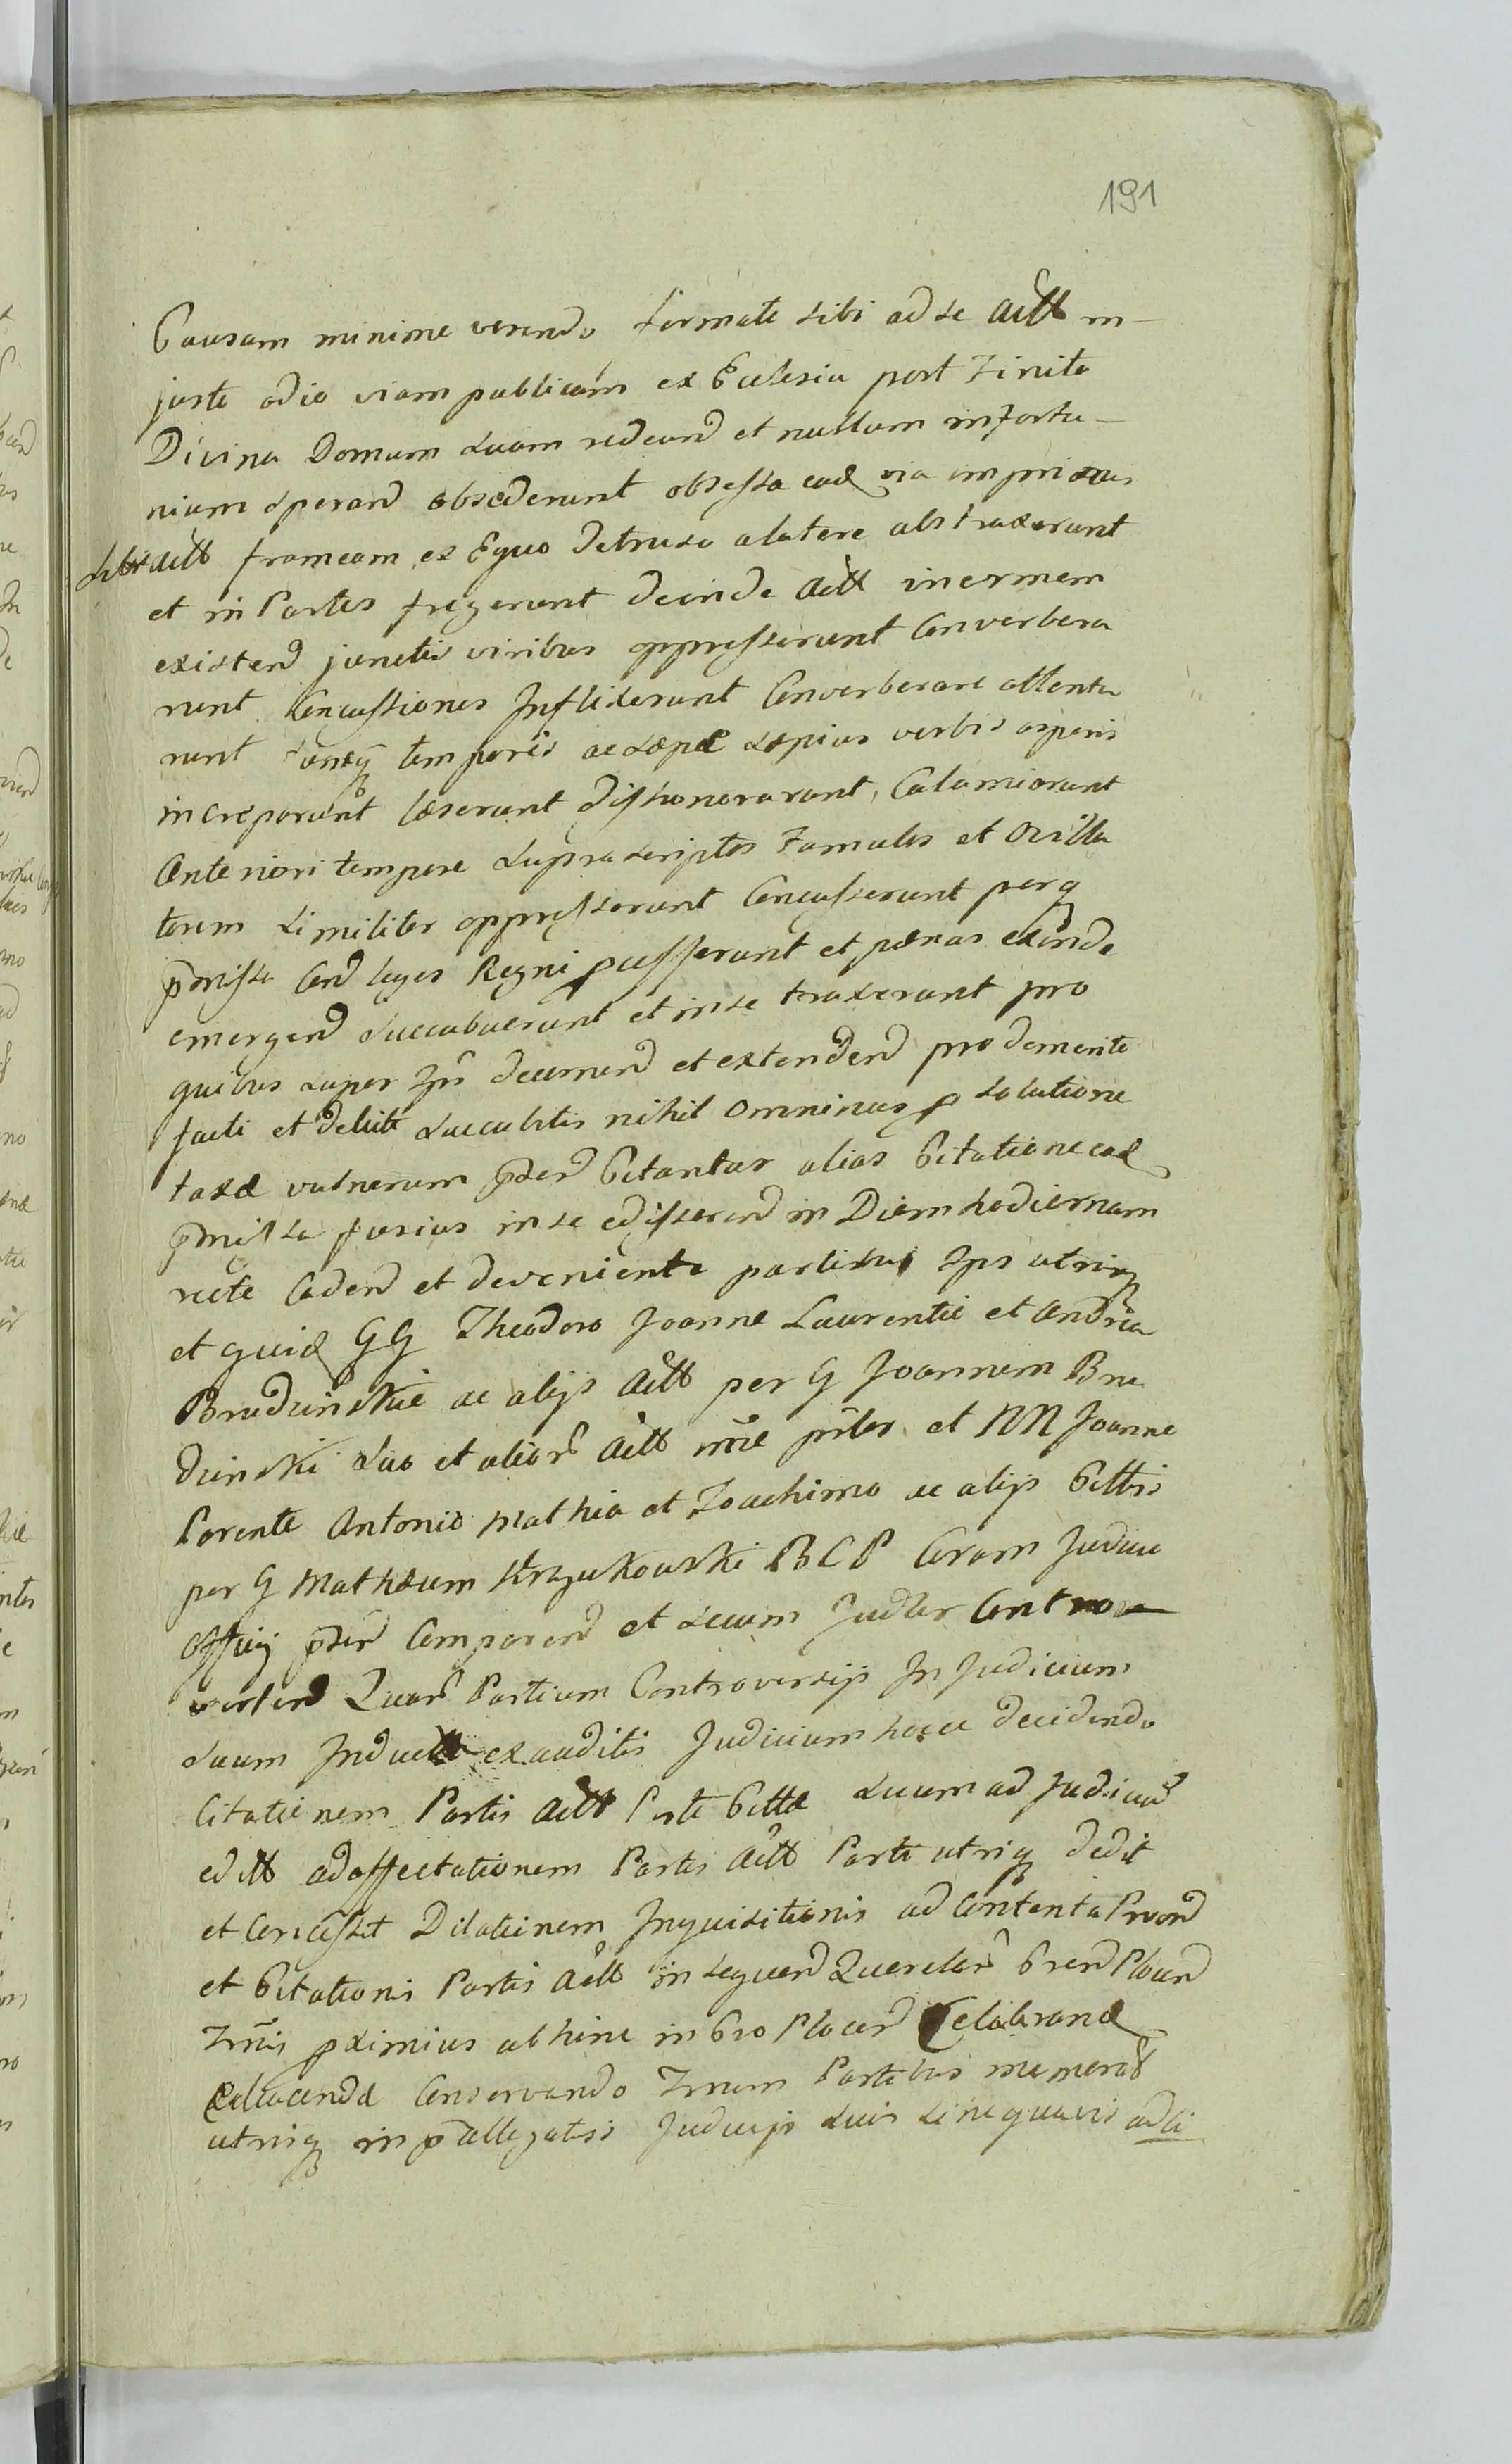 191
Causam minime verendo formato sibi ad se Actt in-
justo odio viam publicam ex Ecclesia post Finita
Divina Domum suam redeund et nullum infortu-
nium sperand obsederunt obsessa ead via imprimis
Actt frameam ex Equo detruso a latere abstraxerunt
et in Partes fregerunt deinde Actt inermem
existend junctis viribus oppresserunt Converbera
runt Concussiones Inflixerunt Converberare attenta
runt tuncq temporis ac sæpe sæpius verbis asperis
increparunt læserunt dishonorarunt, Calumiarunt
Anteriori tempore suprascriptos Famulos et Ovilla
torem similiter oppresserunt Concusserunt perq
pmissa Cnd leges Regni pcesserunt et pænas exinde
emergend succubuerunt et in se traxerunt pro
quibus super Ipsis decernend et extendend pro demerito
facti et debite succubitis nihil ominusq p solutione
taxæ vulnerum pter Citantur alias Citatione ead
pmissa fusius in se edisserend in Diem hodiernam
recte Cadend et deveniente partibus Ips utrinq
et quid GG Theodoro Joanne Laurentio et Andrea
Brudzinskie ac alijs Actt per G Joannem Bru
dzinski suo et alior Actt noie pnter et NN Joanne
Parente Antonio Mathia et Joachimo ac alijs Cittis
per G Mathæum Krzykowski BCP Coram Judicio
Officij pter Comparend et secum Judter Controv
vertend Quar Partium Controversijs In Judicium
suum Inductis exauditis Judicium hocce decidendo
Citationem Partis Actt Parte Citta suum ad Judicium
editt ad affectationem Partis Actt Parti utriq dedit
et Concessit Dilationem Inquisitionis ad Contenta
et Citationis Partis Actt in sequend Querelar
Trnis pximius abhinc in Cro Plocen Celebrand
educendæ Conservando Trnum Partibus memorat
utrisq in pallegatis Judicijs suis sine quavis adci